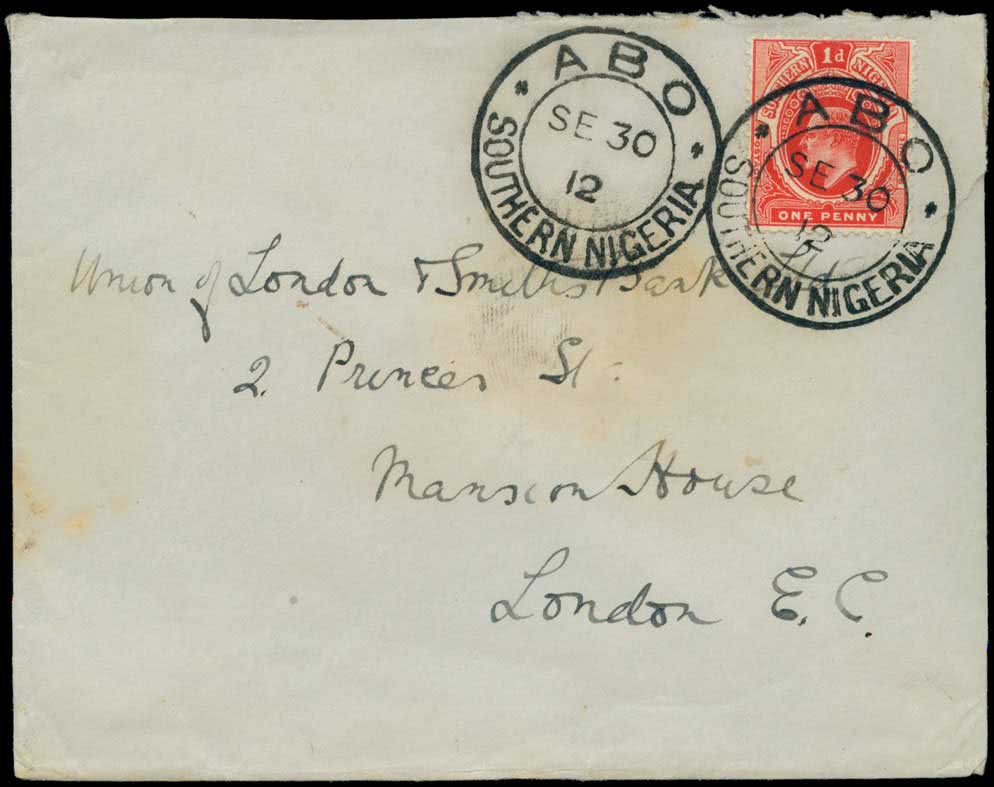 ABO
SE 30
12
SOUTHERN NIGERIA
1d
SOUTHERN NIGE
ONE PENNY
ABO
SE 30
12
SOUTHERN NIGERIA
Union of London & Smiths Bank Ltd
2. Princes St.
Mansion House
London E.C.